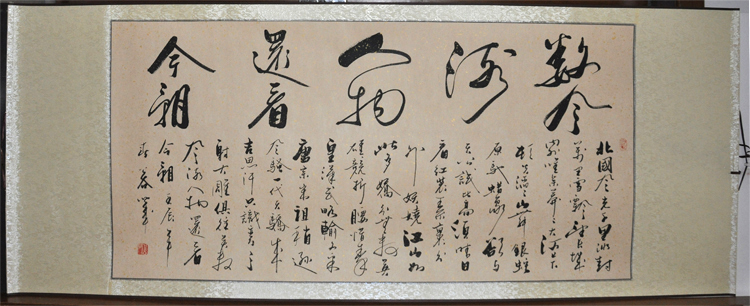 数风
流
人物
還看
今朝
北國风光千里冰封
萬里雪飄望長城
內外唯余莽莽大河上下
頓失滔滔山舞銀蛇
原馳蠟象欲与
天公試比高須晴日
看紅裝素裹分
外妖嬈江山如
此多嬌引無數英
雄競折腰惜秦
皇漢武略輸文采
唐宗宋祖稍遜
风騷一代天驕成
吉思汗只識彎弓
射大雕俱往矣數
风流人物還看
今朝 壬辰年